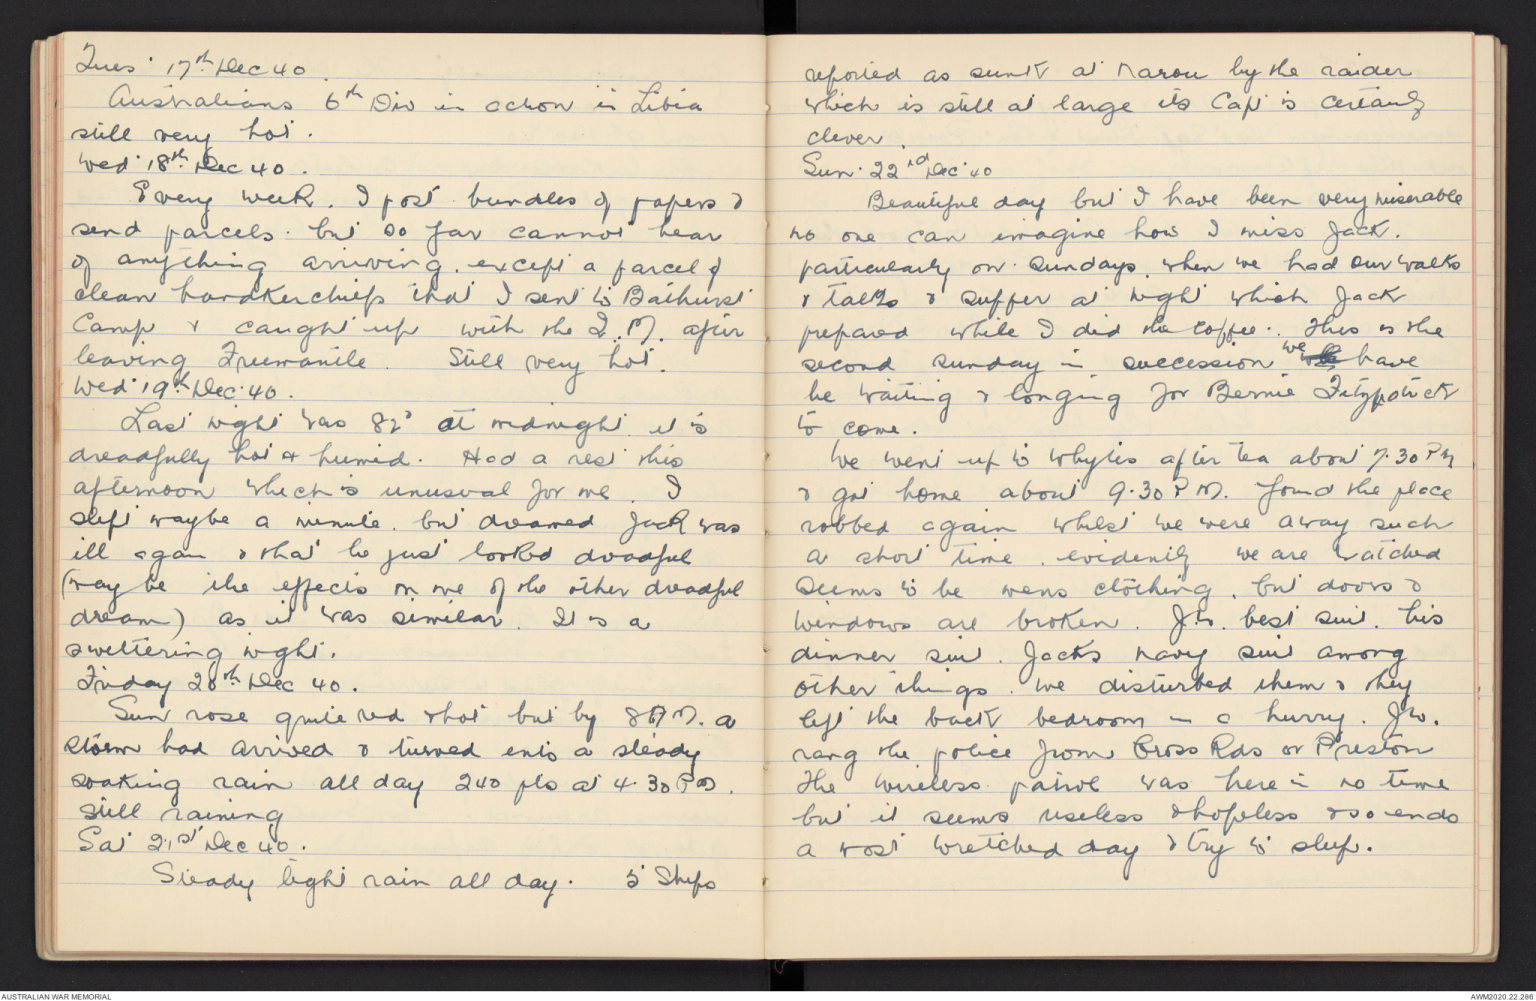 Tues' 17th Dec 40.
Australians 6th Div in action in Libia
still very hot.
Wed' 18th Dec 40.
Every week. I post bundles of papers &
send parcels. but so far cannot hear
of anything arriving. except a parcel of
clean handkerchiefs that I sent to Bathurst
Camp & caught up with the Q.M. after
leaving Freemantle. Still very hot.
Wed' 19th Dec. 40.
Last night was 82° at midnight it is
dreadfully hot & humid. Had a rest this
afternoon which is unusual for me. I
slept maybe a minute. but dreamed Jack was
ill again & that he just looked dreadful
(may be the effects on me of the other dreadful
dream) as it was similar. It is a
sweltering night.
Friday 20th Dec 40.
Sun rose quite red & hot but by 8 A.M. a
storm had arrived & turned into a steady
soaking rain all day 240 pts at 4.30 P.M.
Still raining
Sat 21st Dec 40.
Steady light rain all day. 5 Ships
reported as sunk at Narou by the raider
which is still at large its Capt is certainly
clever.
Sun. 22nd Dec 40
Beautiful day but I have been very miserable
no one can imagine how I miss Jack.
particularly on Sundays. when we had our walks
& talks & supper at night which Jack
prepared while I did the coffee. This is the
second Sunday in succession we have
be waiting & longing for Bernie Fitzpatrick
to come.
We went up to Whytes after tea about 7.30 PM
& got home about 9.30 P.M. found the place
robbed again whilst we were away such
a short time. evidently we are watched
seems to be mens clothing, but doors &
windows are broken. J.W. best suit. his
dinner suit. Jacks navy suit among
other things. We disturbed them & they
left the back bedroom in a hurry. J.W.
rang the police from Cross Rds or Preston
The wireless patrol was here in no time
but it seems useless & hopeless & so ends
a most wretched day & try to sleep.
AUSTRALIAN WAR MEMORIAL
AWM2020.22.286